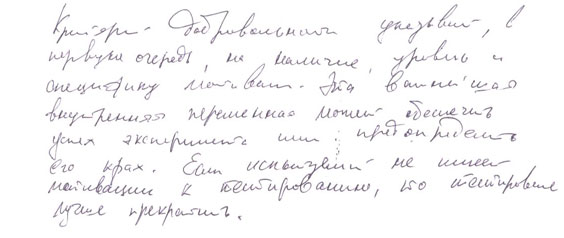 Критерий добровольности указывает, в
первую очередь, на наличие, уровень и
специфику мотивации. Эта важнейшая
внутренняя переменная может обеспечить
успех эксперимента или предопределить
его крах. Если испытуемый не имеет
мотивации к тестированию, то тестирование
лучше прекратить.